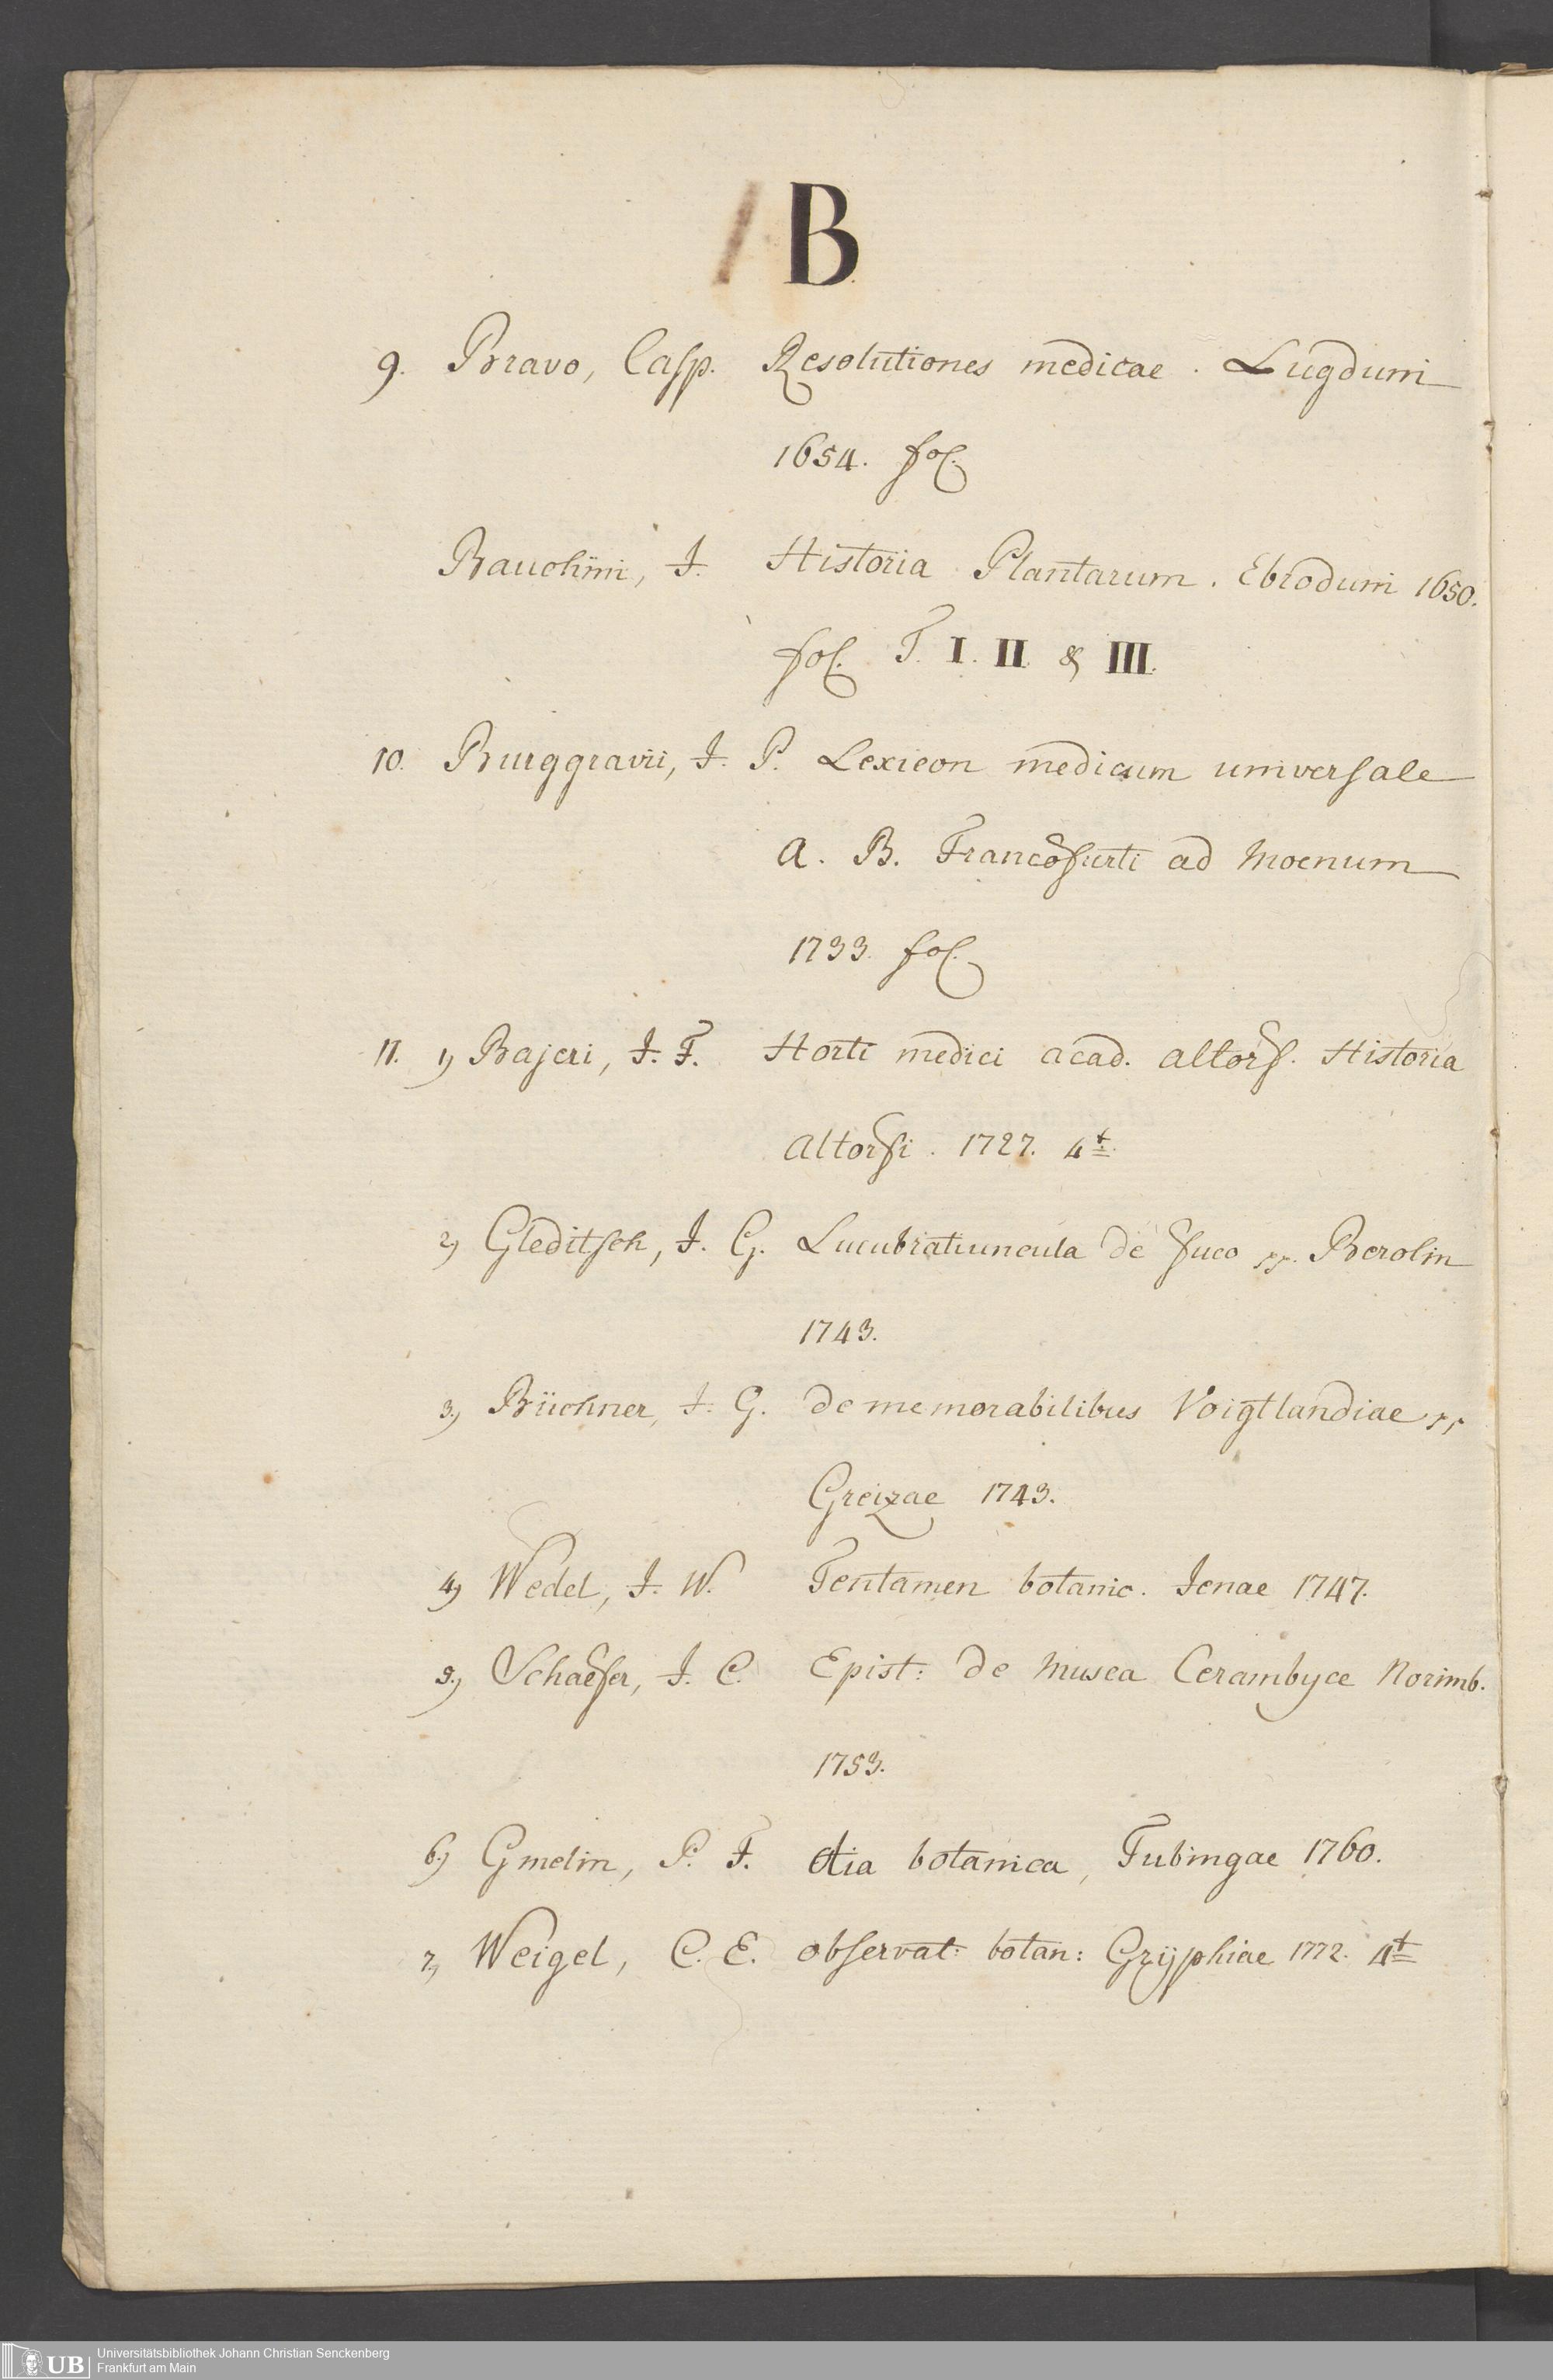 B
9. Bravo, Casp. Resolutiones medicae. Lugduni
1654. fol.
Bauchini, J. Historia Plantarum. Ebroduni 1650.
fol. T. I. II & III.
10. Burggravii, J. P. Lexicon medicum universale
A. B. Francofurti ad Moenum
1733. fol.
11. 1) Bajeri, J. F. Horti medici acad. altorf. Historia
Altorfi. 1727. 4t.
2) Gleditsch, J. G. Lucubratiuncula de fuco pp. Berolin
1743.
3.) Büchner, J. G. de memorabilibus Voigtlandiae pp
Greizae 1743.
4) Wedel, J. W. Tentamen botanic. Jenae 1747.
5.) Schaefer, J. C. Epist: de Musca Cerambyce Norimb.
1753.
6.) Gmelin, P. F. Otia botanica, Tubingae 1760.
7) Weigel, C. E. observat: botan: Gryphiae 1772. 4t
UB
Universitätsbibliothek Johann Christian Senckenberg
Frankfurt am Main